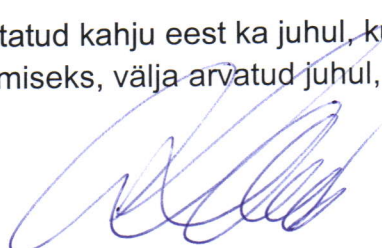 tatud kahju eest ka juhul, k
miseks, välja arvatud juhul,